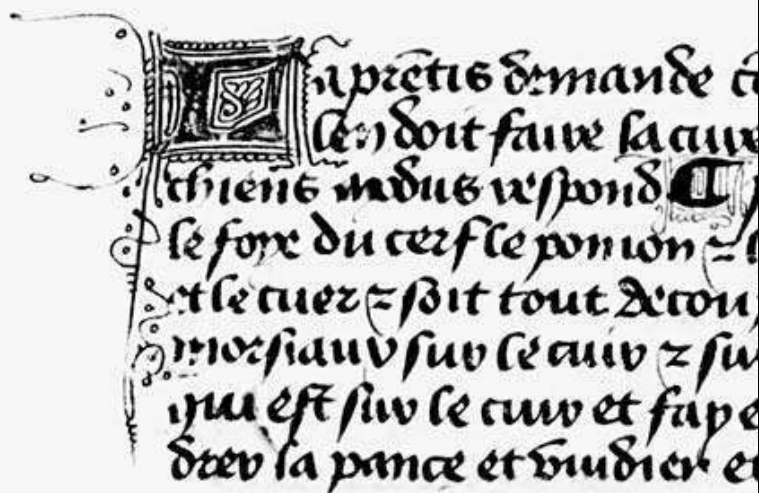 Laprētis demande
len doit faire la cuire
chiens modus respond
le foye du cerf le pomon ⁊
et le cuer ⁊ soit tout decou
morsiaux sur le cuir ⁊ su
qui est sur le cuir et fay e
drer la pance et vuidier et